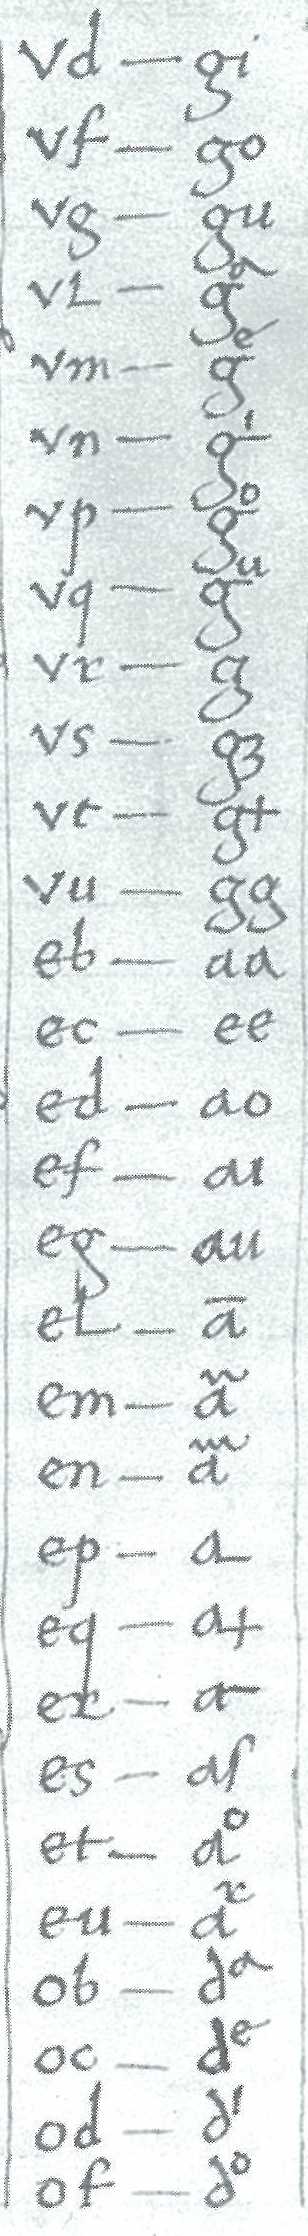 vd — gi
vf — go
vg — gu
vL — gᵃ
vm — gᵉ
vn — g'
vp — gᵒ
vq — gᵘ
vr — g
vs — g3
vt — g+
vu — gg
eb — aa
ec — ee
ed — ao
ef — ai
eg — au
eL — ā
em — ã
en — aᵐ
ep — a_
eq — a+
er — a-
es — aſ
et — a⁰
eu — aˣ
ob — dᵃ
oc — dᵉ
od — d'
of — d⁰